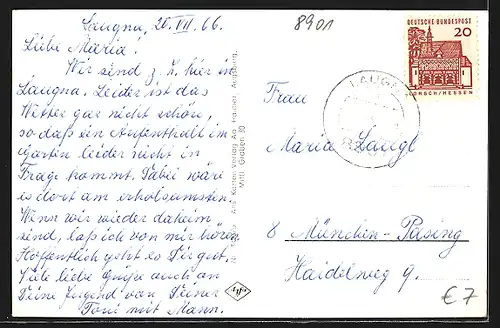 Laugna, 20. VII. 66.
Liebe Maria!
Wir sind z. Z. hier in
Laugna. Leider ist das
Wetter gar nicht schön,
so daß ein Aufenthalt im
Garten leider nicht in
Frage kommt. Dabei wäre
es dort am erholsamsten.
Wenn wir wieder daheim
sind, laß ich von mir hören
Hoffentlich geht es Dir gut.
Viele liebe Grüße auch an
Deine Jugend von Deiner
Toni mit Mann.
Ans. Karten Verlag Ad. Trauner, Augsburg,
Mittl. Graben 30
8901
DEUTSCHE BUNDESPOST
20
LORSCH/HESSEN
LAUGNA
Frau
Maria Laugl
8 München-Pasing
Haidelweg 9.
€7
Agfa